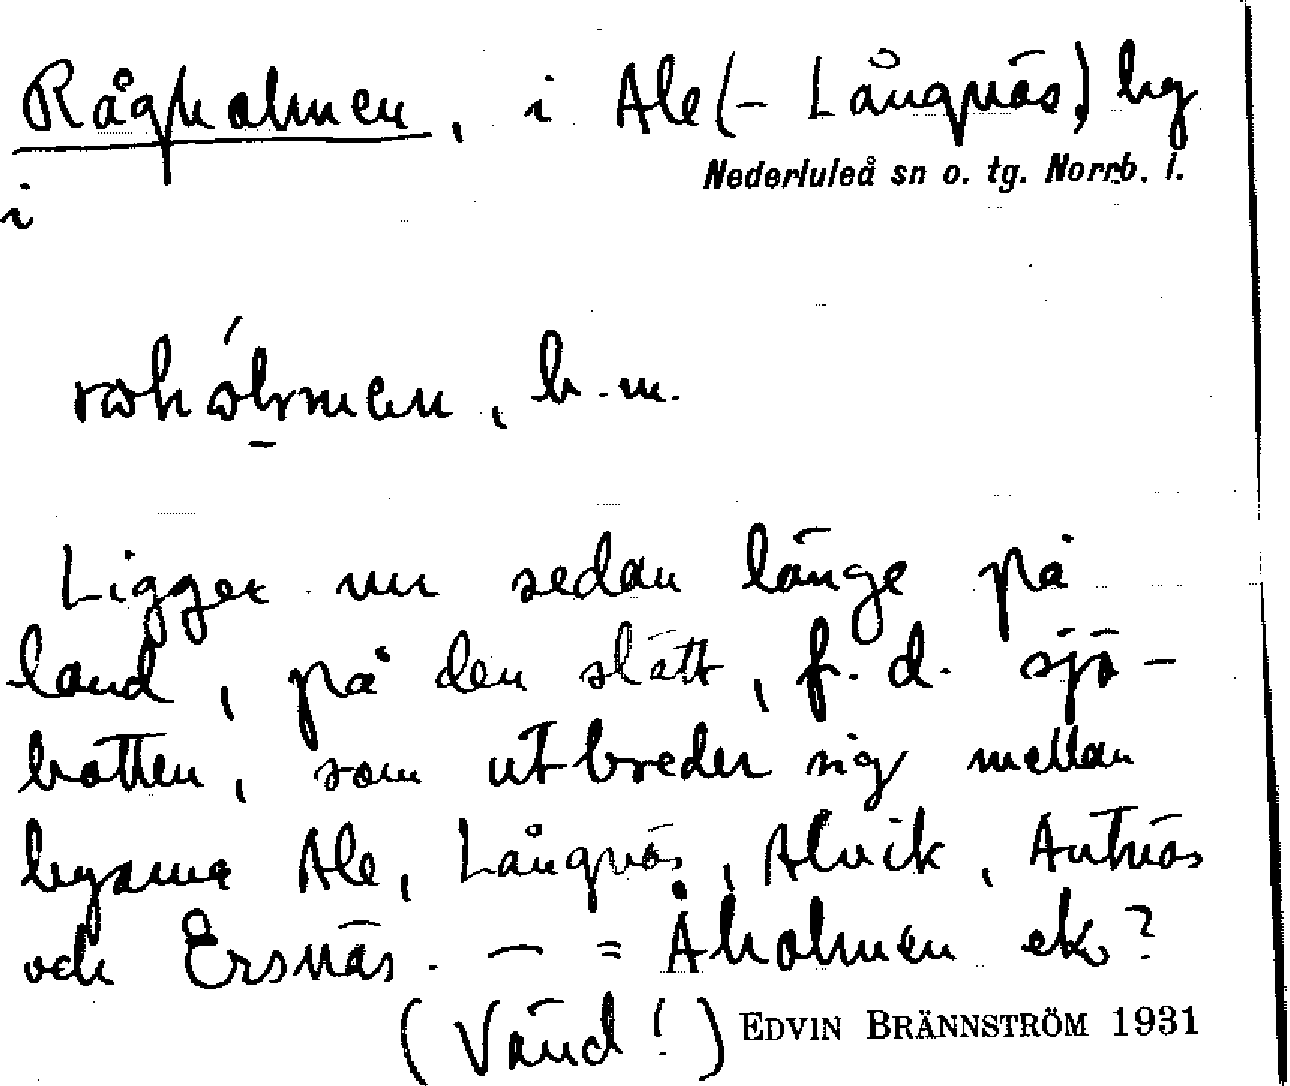 Rågholmen, i Ale (– Långnäs) by
Nederluleå sn o. tg. Norrb. l.
i
b. m.
Ligger nu sedan länge på
land, på den slätt, f. d. sjö-
botten, som utbreder sig mellan
byarna Ale, Långnäs, Alvik, Antnäs
och Ersnäs. – = Åholmen ek?
(Vänd!) EDVIN BRÄNNSTRÖM 1931